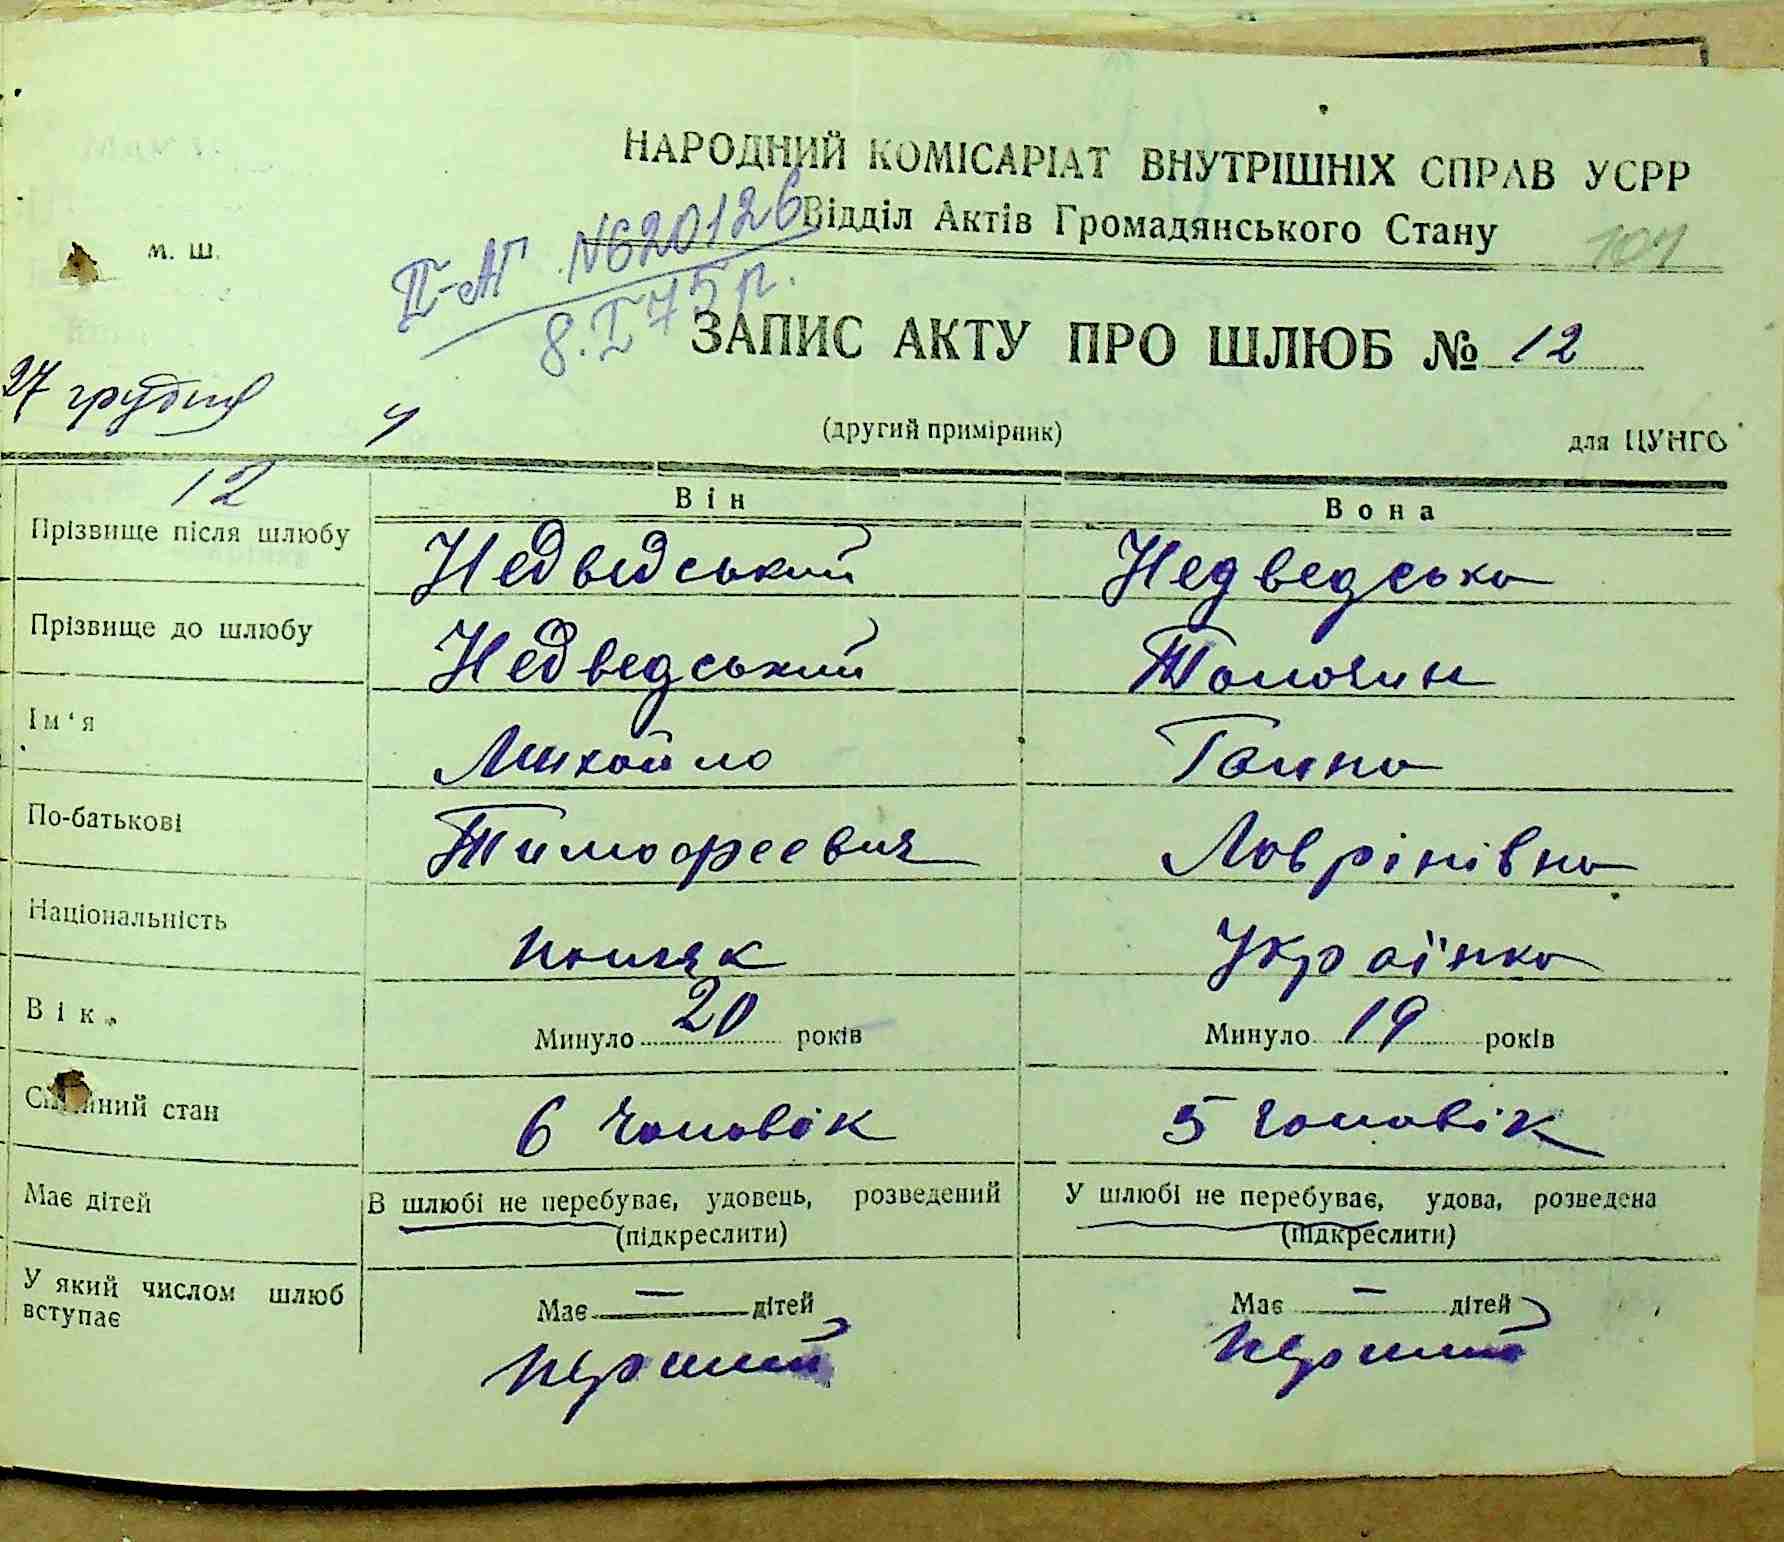 НАРОДНИЙ КОМІСАРІАТ ВНУТРІШНІХ СПРАВ УСРР
Відділ Актів Громадянського Стану
101
м. ш.
ІІ-АГ №620126
8.І 75 р.
ЗАПИС АКТУ ПРО ШЛЮБ № 12
27 грудня
(другий примірник)
для ЦУНГО
12
Він
Вона
Прізвище після шлюбу
Недведський
Недведська
Прізвище до шлюбу
Недведський
Толочин
Ім'я
Михайло
Ганна
По-батькові
Тимофеевич
Лаврінівна
Національність
поляк
Українка
Вік
Минуло 20 років
Минуло 19 років
Сімейний стан
6 чоловік
5 чоловік
Має дітей
В шлюбі не перебуває, удовець, розведений
(підкреслити)
У шлюбі не перебуває, удова, розведена
(підкреслити)
У який числом шлюб
вступає
Має — дітей
Має — дітей
перший
перший